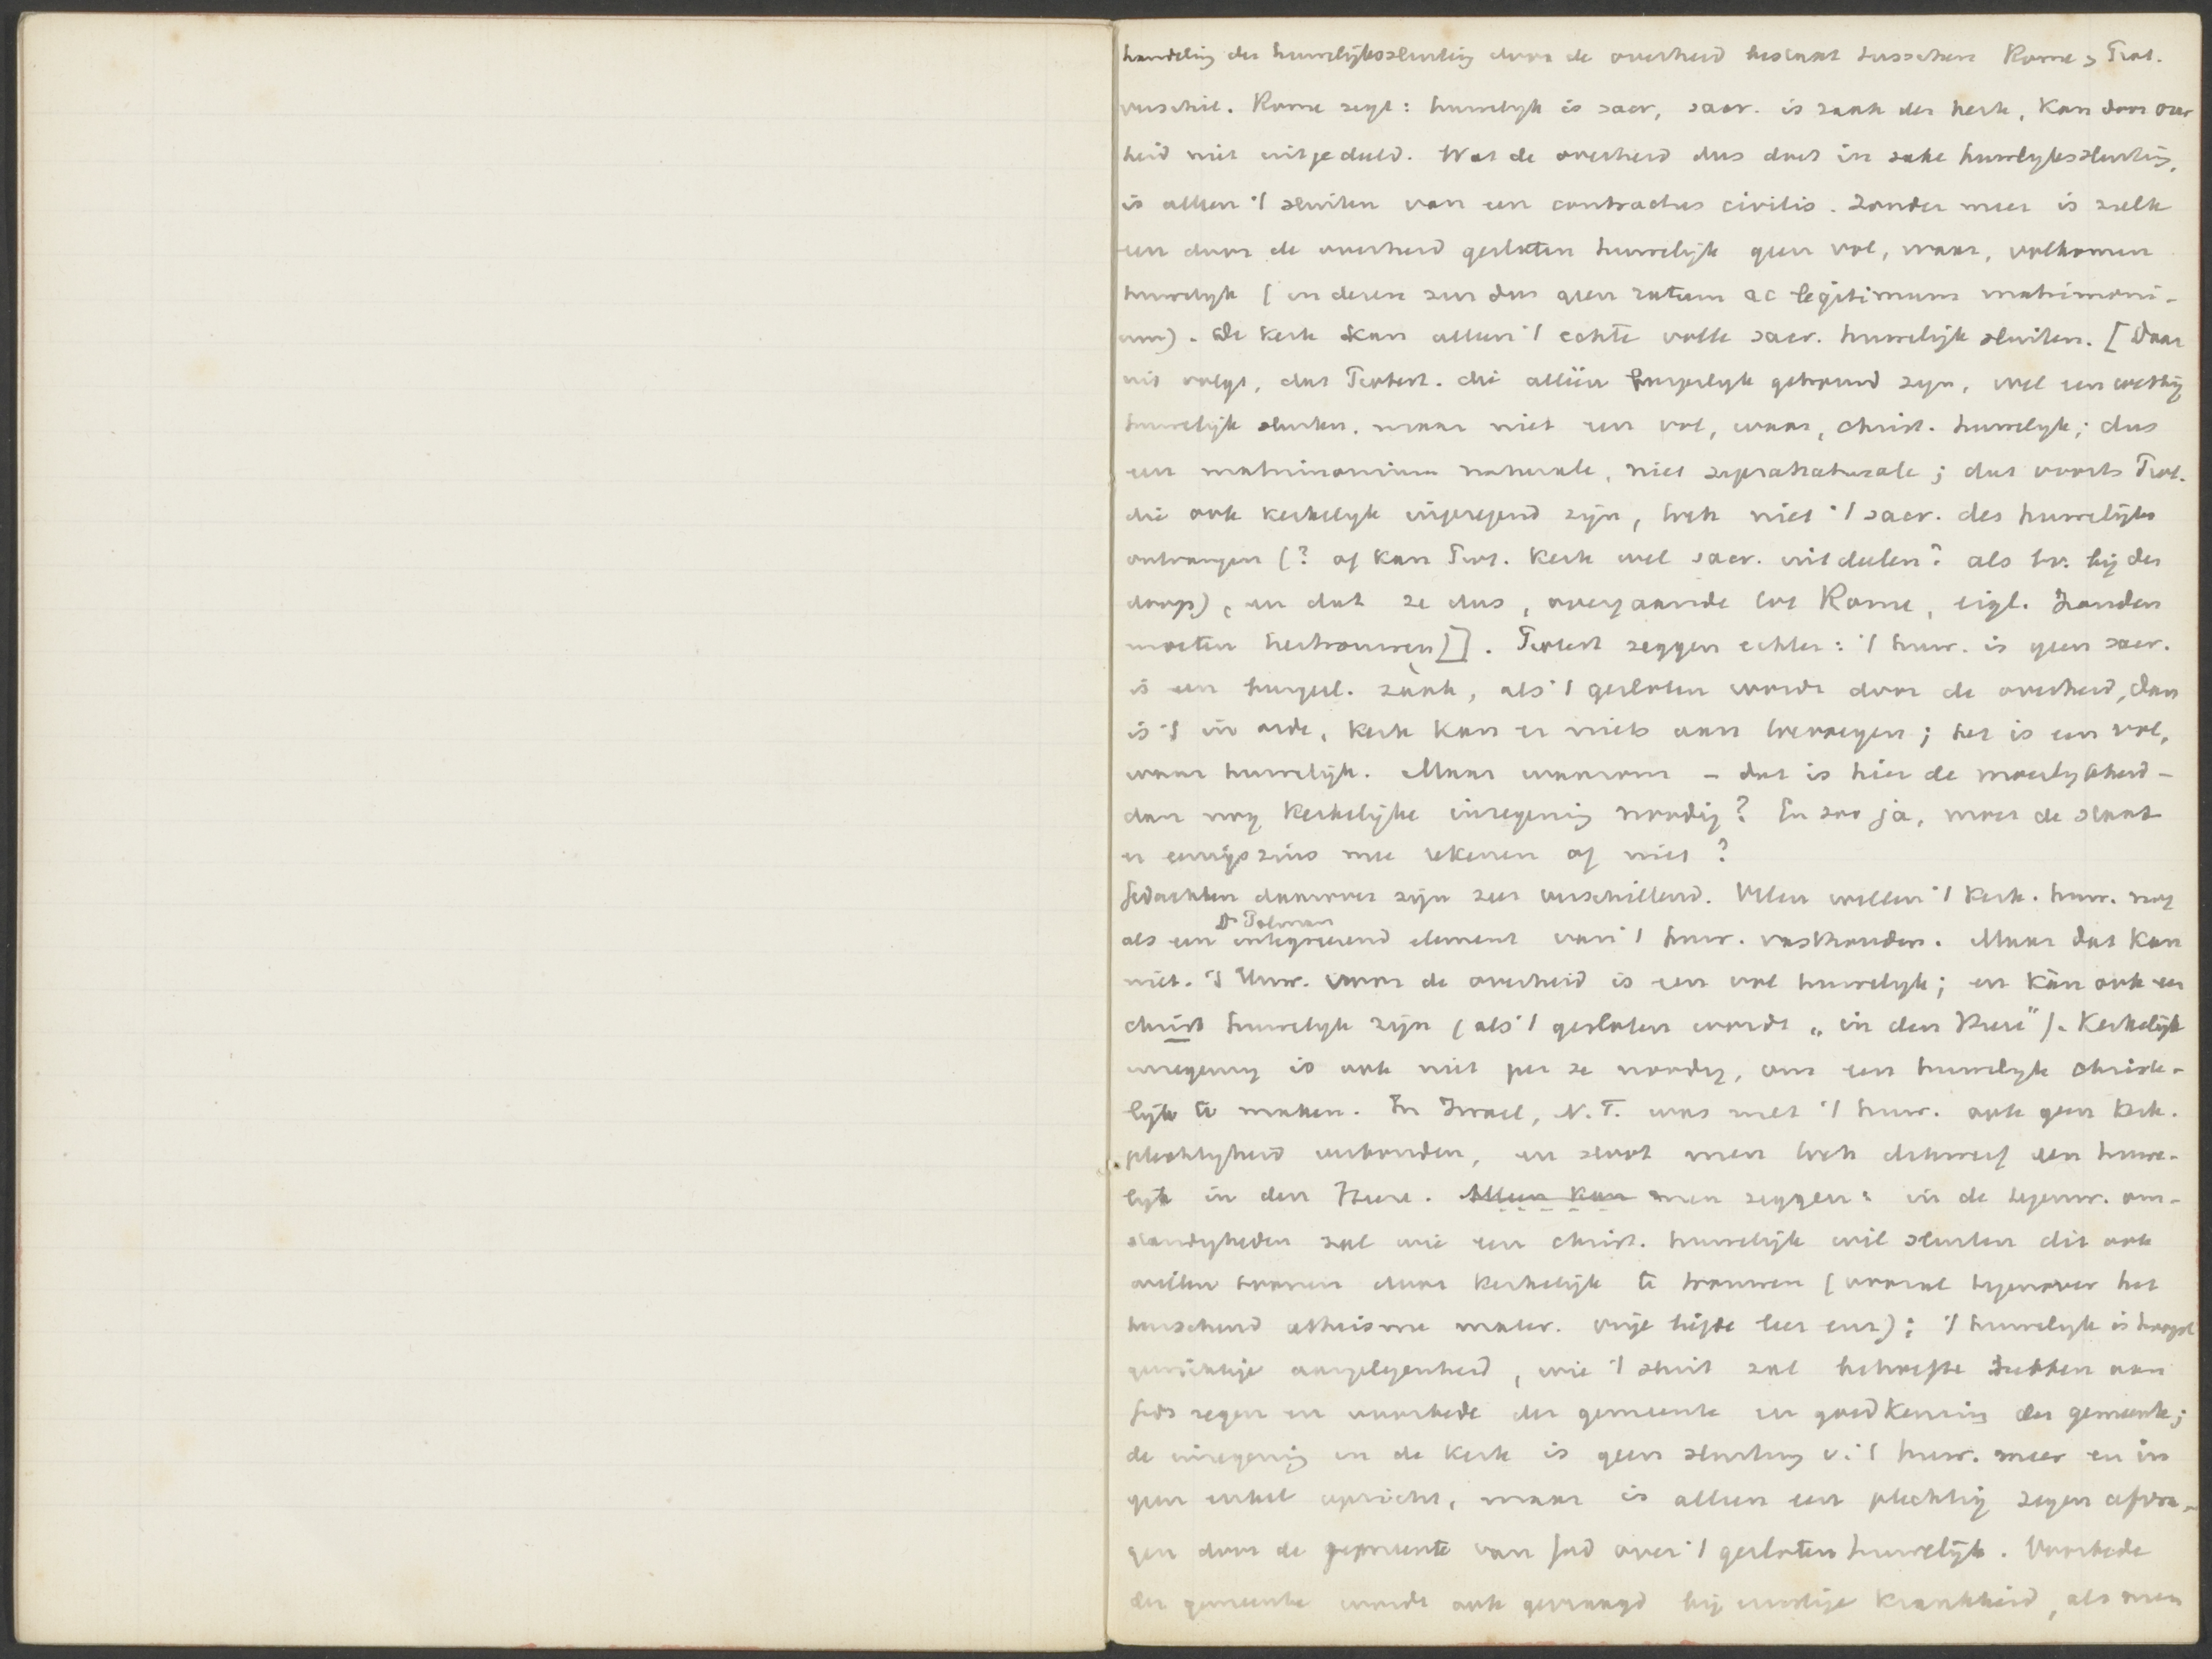 handeling der huwelijkssluiting door de overheid bestaat tusschen Rome & Prot.
verschil. Rome zegt: huwelijk is sacr, sacr. is zaak der kerk, kan door over
heid niet uitgedeeld. Wat de overheid dus doet in zake huwelijkssluiting,
is alleen 't sluiten van een contractus civilis. Zonder meer is zulk
een door de overheid gesloten huwelijk geen vol, waar, volkomen
huwelijk (in deren zin dus geen ratum ac legitimum matrimoni-
um). De kerk kan alleen 't echte volle sacr. huwelijk sluiten. [Daar
uit volgt, dat Protest. die alléén burgerlijk getrouwd zijn, wel een wettig
huwelijk sluiten, maar niet een vol, waar, christ. huwelijk; dus
een matrimonium naturale, niet supranaturale; dat voorts Prot.
die ook kerkelijk ingezegend zijn, toch niet 't sacr. des huwelijks
ontvangen (? of kan Prot. kerk wel sacr. uitdeelen? als bv. bij den
doop), en dat ze dus, overgaande tot Rome, eigl. zouden
moeten hertrouwen]]. Protest zeggen echter: 't huw. is geen sacr.
is een burgerl. zaak, als 't gesloten wordt door de overheid, dan
is 't in orde, kerk kan er niets aan toevoegen; het is een vol,
waar huwelijk. Maar waarom – dat is hier de moeilijkheid –
dan nog kerkelijke inzegening noodig? En zoo ja, moet de staat
er eenigszins mee rekenen of niet?
Gedachten daarover zijn zeer verschillend. Velen willen 't kerk. huw. nog
Dr Polman
als een integreerend element van 't huw. vasthouden. Maar dat kan
niet. 't Huw. voor de overheid is een vol huwelijk; en kàn ook een
christ huwelijk zijn (als 't gesloten wordt „in den Heere"). Kerkelijk
inzegening is ook niet per se noodig, om een huwelijk christe-
lijk te maken. In Israel, N.T. was met 't huw. ook geen kerk.
plechtigheid verbonden, en sloot men toch dikwerf een huwe-
lijk in den Heere. Alleen kan men zeggen: in de tegenw. om-
standigheden zal wie een christ. huwelijk wil sluiten dit ook
willen toonen door kerkelijk te trouwen (vooral tegenover het
heerschend atheisme mater. vrije liefde leer enz); 't huwelijk is hoogst
gewichtige aangelegenheid, wie 't sluit zal behoefte hebben aan
Gods zegen en voorbede der gemeente en goedkeuring der gemeente;
de inzegening in de kerk is geen sluiting v. 't huw. meer en in
geen enkel opzicht, maar is alleen een plechtig zegen afvra-
gen door de gemeente van God over 't gesloten huwelijk. Voorbede
der gemeente wordt ook gevraagd bij ernstige krankheid, als men